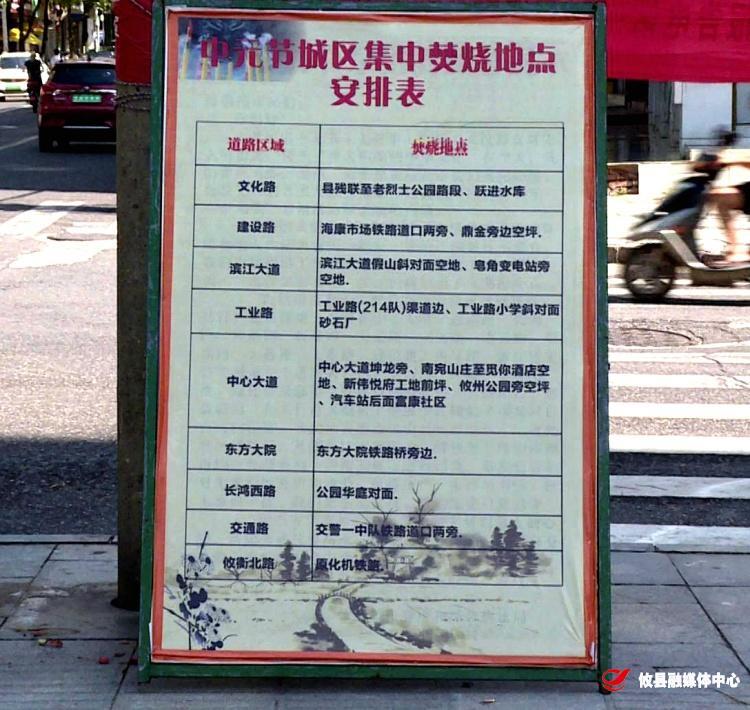 中元节城区集中焚烧地点
安排表
道路区域 焚烧地点
文化路 县残联至老烈士公园路段、跃进水库
建设路 海康市场铁路道口两旁、鼎金旁边空坪.
滨江大道 滨江大道假山斜对面空地、皂角变电站旁
空地.
工业路 工业路(214队)渠道边、工业路小学斜对面
砂石厂
中心大道 中心大道坤龙旁、南宛山庄至觅你酒店空
地、新伟悦府工地前坪、攸州公园旁空坪
、汽车站后面富康社区
东方大院 东方大院铁路桥旁边.
长鸿西路 公园华庭对面.
交通路 交警一中队铁路道口两旁.
攸衡北路 原化机铁路.
攸县融媒体中心